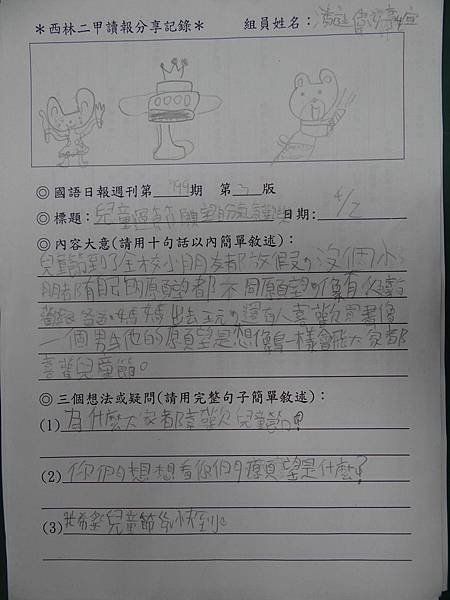 ＊西林二甲讀報分享記錄＊ 組員姓名：
◎ 國語日報週刊第 799 期 第 3 版
◎ 標題：兒童節願望 日期：4/2
◎ 內容大意(請用十句話以內簡單敘述)：
兒童節到了全校小朋友都放假，沒個小
朋友都有自己的願望都不同願望，像有
爸爸媽媽出去玩，還有人喜歡
一個男生他的願望是想像鳥一樣會飛大家都
喜歡兒童節。
◎ 三個想法或疑問(請用完整句子簡單敘述)：
(1) 為什麼大家都喜歡兒童節？
(2) 你們想想看你們的願望是什麼？
(3) 我希望兒童節